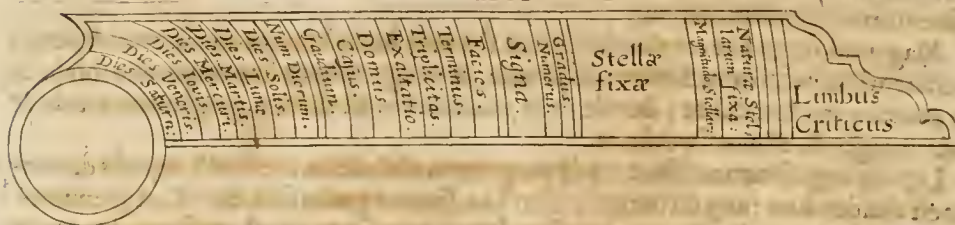 Dies Saturn:
Dies Veneris.
Dies Iovis.
Dies Mercuri.
Dies Martis.
Dies Lunæ
Dies Solis.
Num Dierum.
Gaudium.
Casus.
Domus.
Exaltatio.
Triplicitas.
Terminus.
Facies.
Signa.
Numerus.
Gradus.
Stellæ
fixæ
Magnitudo Stellar:
Naturæ Stel,
larum fixa:
Limbus
Criticus